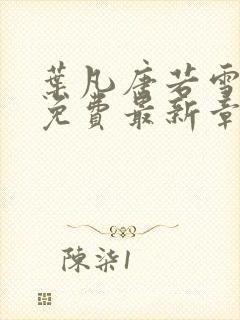 葉凡唐若雪
免費最新章
陳柒1